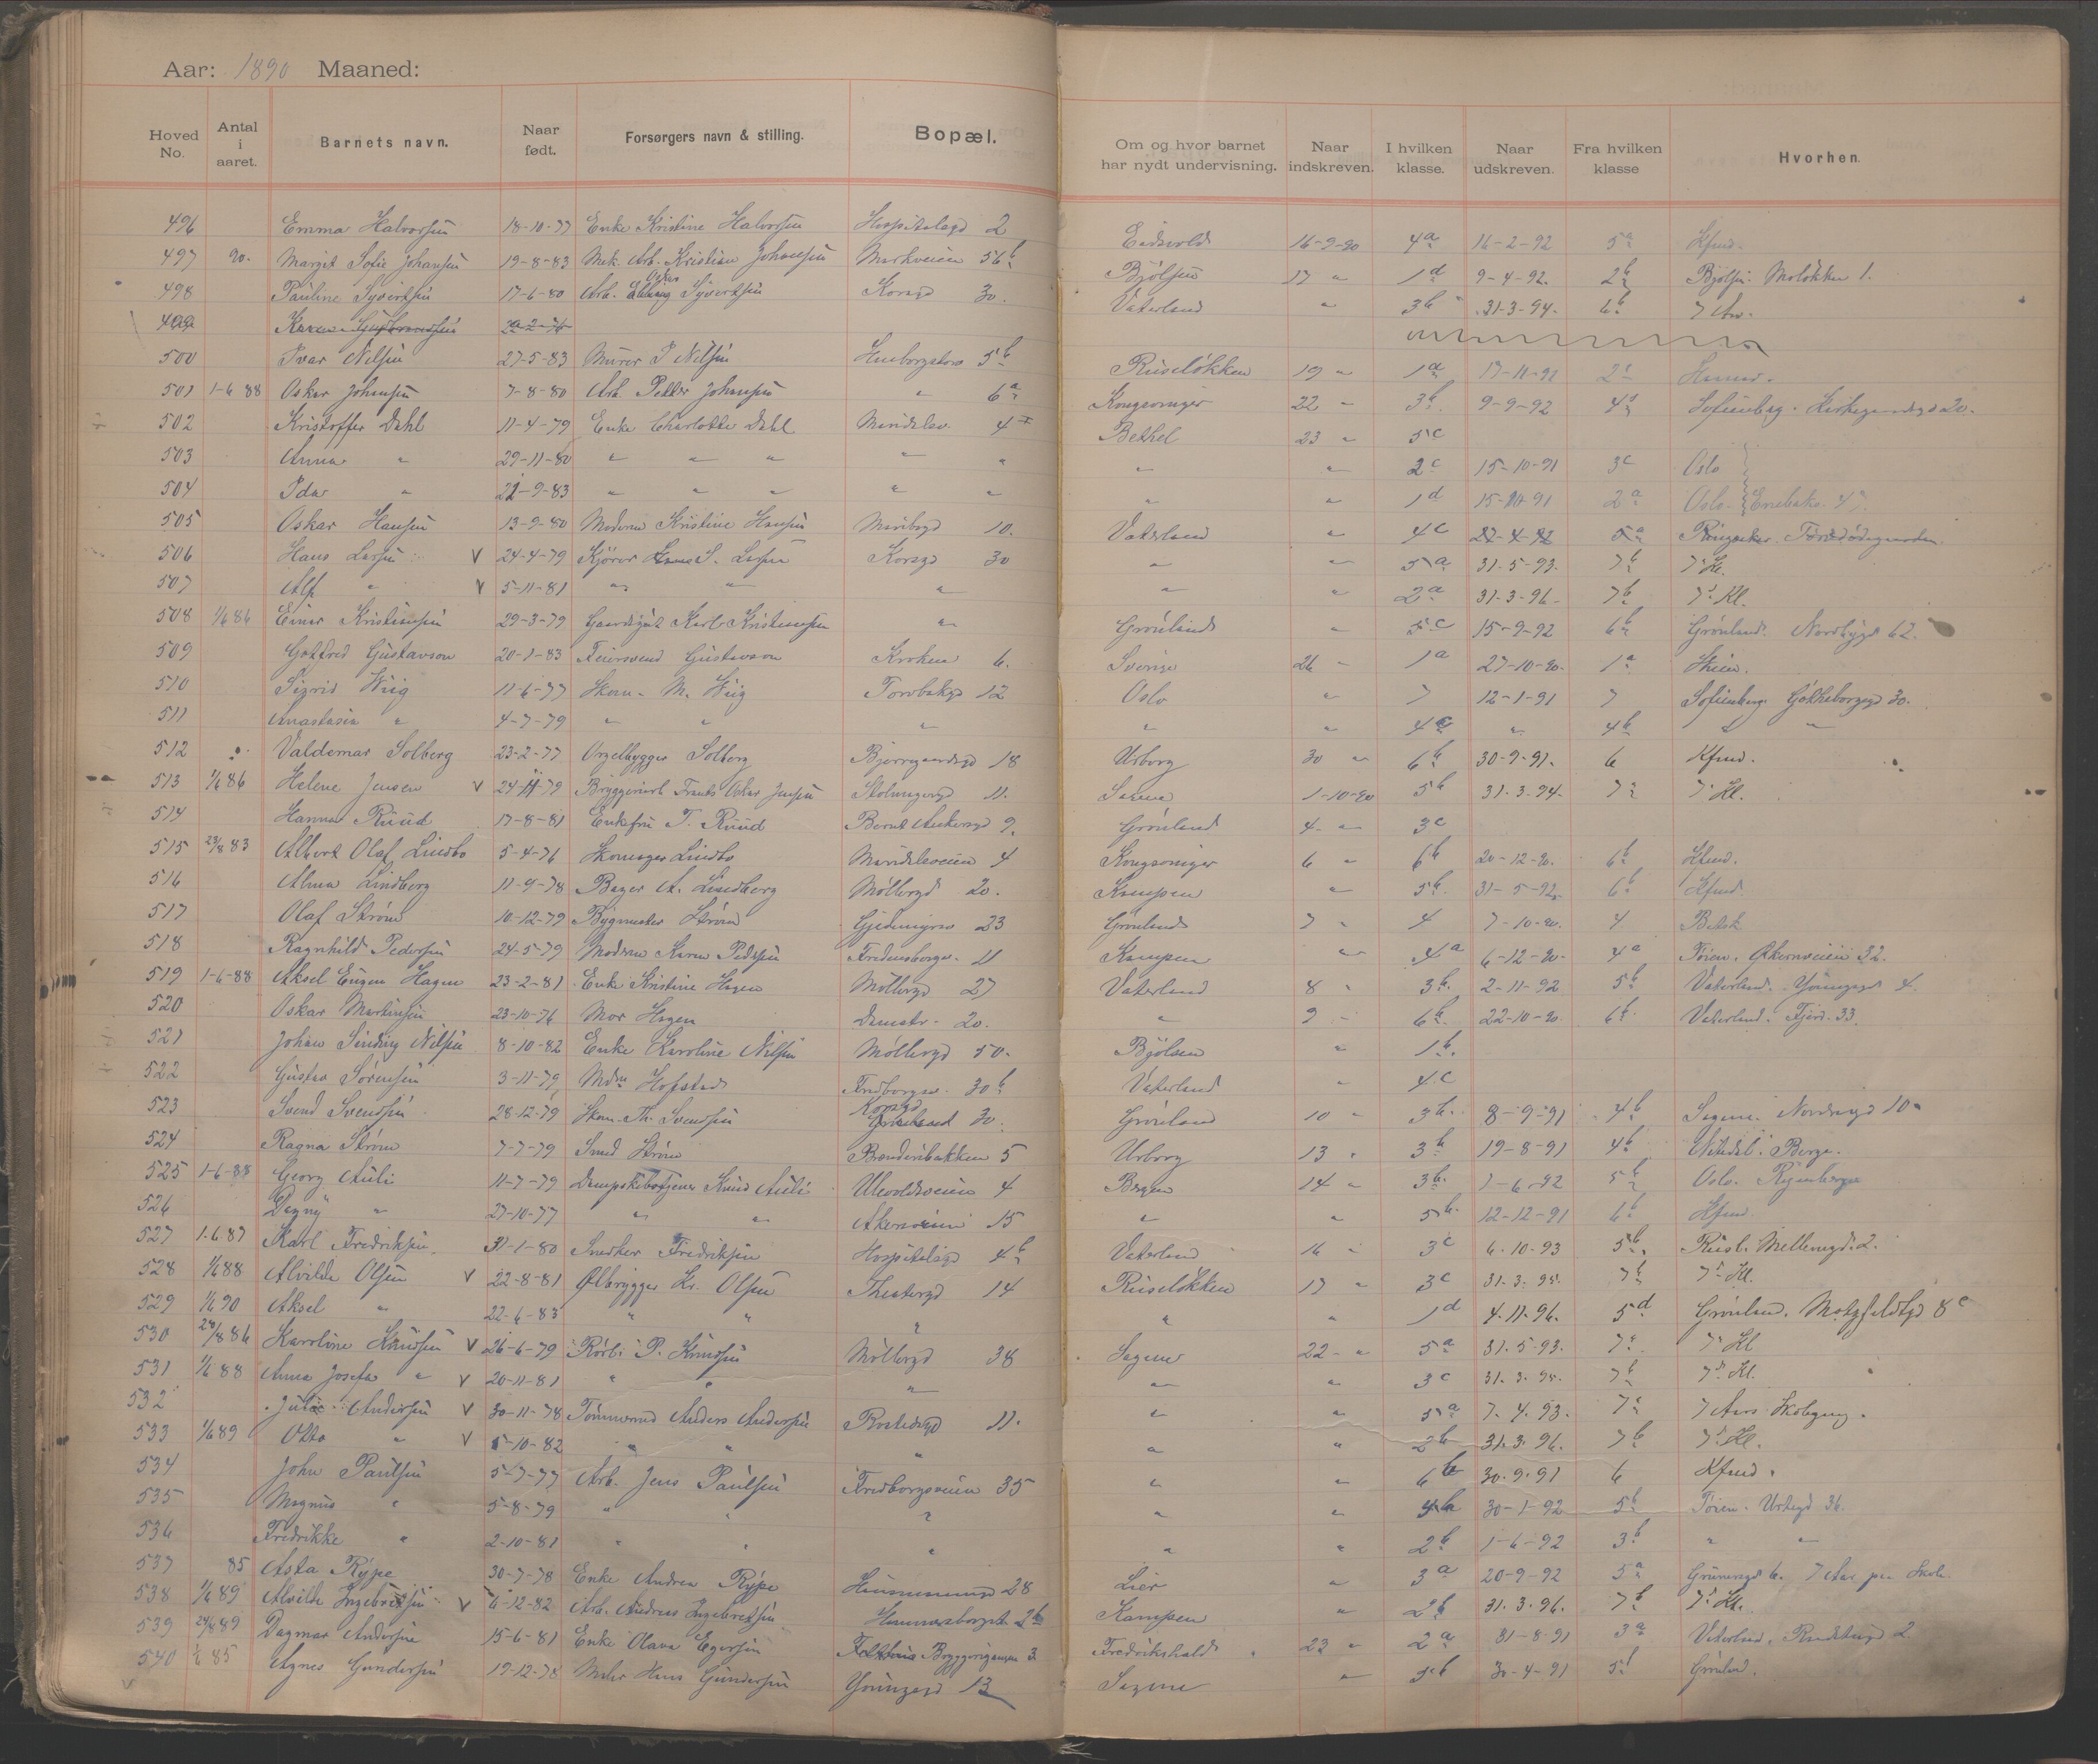 Aar: 1890 Maaned:
Hoved No. Antal i aaret. Barnets navn. Naar født. Forsørgers navn & stilling. Bopæl. Om og hvor barnet har nydt undervisning. Naar indskreven. I hvilken klasse. Naar udskreven. Fra hvilken klasse Hvorhen.
496 Emma Halvorsen 18-10-77 Enke Kristine Halvorsen Hospitalsgd 2 Eidsvold 16-9-90 4a 16-2-92 5a Kfmd.
497 90. Margit Sofie Johansen 19-8-83 Mek. Arb. Kristian Johansen Markveien 56b Bjølsen 17 " 1d 9-4-92. 2b Bjølsen Moløkken 1.
498 Pauline Syvertsen 17-6-80 Arb. Oskar Syvertsen Korsgd 30. Vaterland " 3b 31-3-94. 6b 7 Aar.
499
500 Ivar Nilsen 27-5-83 Murer P Nilsen 5b Ruseløkken 19 " 1a 17-11-91 2c
501 1-6 88 Oskar Johansen 7-8-80 Arb. Petter Johansen " 6a Kongsvinger 22 " 3b. 9-9-92 4d Sofienberg. 20.
502 Kristoffer Dahl 11-4-79 Enke Charlotte Dahl 4 Bethel 23 " 5c
503 Anna " 29-11-80 " " " " " " " 2c 15-10-91 3c Oslo
504 Idar " 21-9-83 " " " " " " " 1d 15-10-91 2a Oslo Enebakv. 4
505 Oskar Hansen 13-9-80 Moderen Kristine Hansen Maribogd 10. Vaterland " 4c 22-4-92 5a Ringsaker.
506 Hans Larsen V 24-4-79 Kjører S. Larsen Korsgd 30 " " 5a 31-5-93. 7b 7' Kl.
507 Alf " V 5-11-81 " " " " " 2a 31-3-96. 7b 7' Kl.
508 1/6 86 Einar Kristiansen 29-3-79 Gaardsgut Karl Kristiansen " Grønland " 5c 15-9-92 6b Grønland. Nordbygd 62.
509 Gotfred Gustavson 20-1-83 Feiersvend Gustavson Kroken 6. Sverige 26 " 1a 27-10-90. 1a Skien.
510 Sigrid Wiig 11-6-77 Skom. M. Wiig Torvbakgd 12 Oslo " 7 12-1-91 7 Sofienberg. Gøtheborggd 30.
511 Anastasia " 4-7-79 " " " " " 4c " 4b " "
512 Valdemar Solberg 23-2-77 Orgelbygger Solberg Bjerregaardsgd 18 Uranborg 30 " 6b 30-9-91. 6 Kfmd.
513 1/6 86 Helene Jensen V 24-11-79 Bryggeriarb Frants Oskar Jensen 11. Sagene 1-10-90 5b 31.3.94. 7a 7' Kl.
514 Hanna Ruud 17-8-81 Enkefru T. Ruud Bernt Ankersgd 9. Grønland 4 " 3c
515 23/8 83 Albert Olaf Lindbo 5-4-76 Skomager Lindbo Maridalsveien 4 Kongsvinger 6 " 6b 20-12-90. 6b Kfmd.
516 Alma Lindberg 11-9-78 Bager A. Lindberg Møllergd 20. Kampen " 5b. 31-5-92. 6b Kfmd
517 Olaf Strøm 10-12-79 Bygmester Strøm 23 Grønland 7 " 4 7-10-90. 4
518 Ragnhild Pedersen 24-5-79 Moderen Karen Pedersen Fredensborgv. 11 Kampen " 4a 6-12-90. 4a Tøien. Økernveien 32.
519 1-6-88 Aksel Eugen Hagen 23-2-81 Enke Kristine Hagen Møllergd 27 Vaterland 8 " 3b. 2-11-92 5b Vaterland. 4.
520 Oskar Martinsen 23-10-76 Mor Hagen Damstr. 20. " 9 " 6b. 22-10-90. 6b Vaterland. Fjerd. 33.
521 Johan Sinding Nilsen 8-10-82 Enke Karoline Nilsen Møllergd 50. Bjølsen " 1b.
522 Gustav Sørensen 3-11-79 Mdm Hofstad Fredborgv. 30b Vaterland " 4c
523 Svend Svendsen 28-12-79 Skom. Th. Svendsen Korsgd 30. Grønland 10 " 3b. 8-9-91 4b Sagene. 10a
524 Ragna Strøm 7-7-79 Smed Strøm Brenneribakken 5 Uranborg 13 " 3b 19-8-91 4b Nitedal.
525 1-6-88 Georg Auli 11-7-79 Dampskibstjener Knud Auli Ullevoldsveien 4 Bergen 14 " 3b. 1-6-92 5b Oslo.
526 Dagny " 27-10-77 " " Akersveien 15 " " 5b. 12-12-91 6b Kfmd.
527 1.6.87 Karl Fredriksen. 31-1-80 Snedker Fredriksen Hospitalsgd 4b Vaterland 16 " 3c 6.10-93 5b. Rusel. Mellemgd. 2.
528 1/6 88 Alvilde Olsen V 22-8-81 Ølbrygger Kr. Olsen Theatergd 14 Ruseløkken 17 " 3c 31.3.95. 7b 7' Kl.
529 1/6 90 Aksel " 22-6-83 " " " " " 1d 4.11.96. 5d Grønland. Motzfeldtgd 8c
530 28/8 86 Karoline Knudsen V 26-6-79 Rørl. P. Knudsen Møllergd 38 Sagene 22 " 5a 31.5-93. 7a. 7' Kl
531 1/6 88 Anna Josefa " V 20-11-81 " " " " " 3c 31.3.95. 7b 7' Kl.
532 Julie Andersen V 30-11-78 Tømmermd Anders Andersen Rostedsgd 11. " " 5a 7.4.93. 7a 7 Aars Skolegang.
533 1/6 89 Otto " V 5-10-82 " " " " " 2b 31.3.96. 7b 7' Kl.
534 John Paulsen 5-7-77 Arb. Jens Paulsen Fredborgveien 35 " " 6b 30.9.91 6 Kfmd.
535 Magnus " 5-8-79 " " " " " 4a 30-1-92 5b Tøien. Urtegd 36.
536 Fredrikke " 2-10-81 " " " " " 2b 1-6-92 3b " "
537 85 Asta Rype 30-7-78 Enke Andrea Rype 28 Lier " 3a 20-9-92 5a Grünersgd 6. 7 Aar paa Skole.
538 1/6 89 Alvilde Ingebretsen V 6-12-82 Arb. Andreas Ingebretsen Hammersborgst 2b Kampen " 2b 31.3.96. 7b 7' Kl.
539 24/8 89 Dagmar Andersen 15-6-81 Enke Olava Egersen Bryggerigangen 3. Fredrikshald. 23 " 2a 31-8-91 3a Vaterland. 2
540 85 Agnes Gundersen 19-12-78 Maler Hans Gundersen 13 Sagene " 5b 30-4-91 5b Grønland.